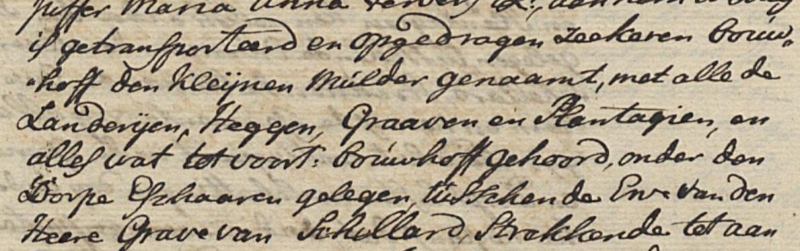 Juffer Maria Anna
is getransporteerd en opgedragen zeekeren bouw,
„hoff den Kleijnen Mulder genaamt, met alle de
Landerijen, Heggen, Graaven en Plantagien, en
alles wat tot voors: bouwhoff gehoord, onder den
Dorpe Eschaaren gelegen, tusschen de Erve van den
Heere Grave van Schellard, Strekkende tot aan